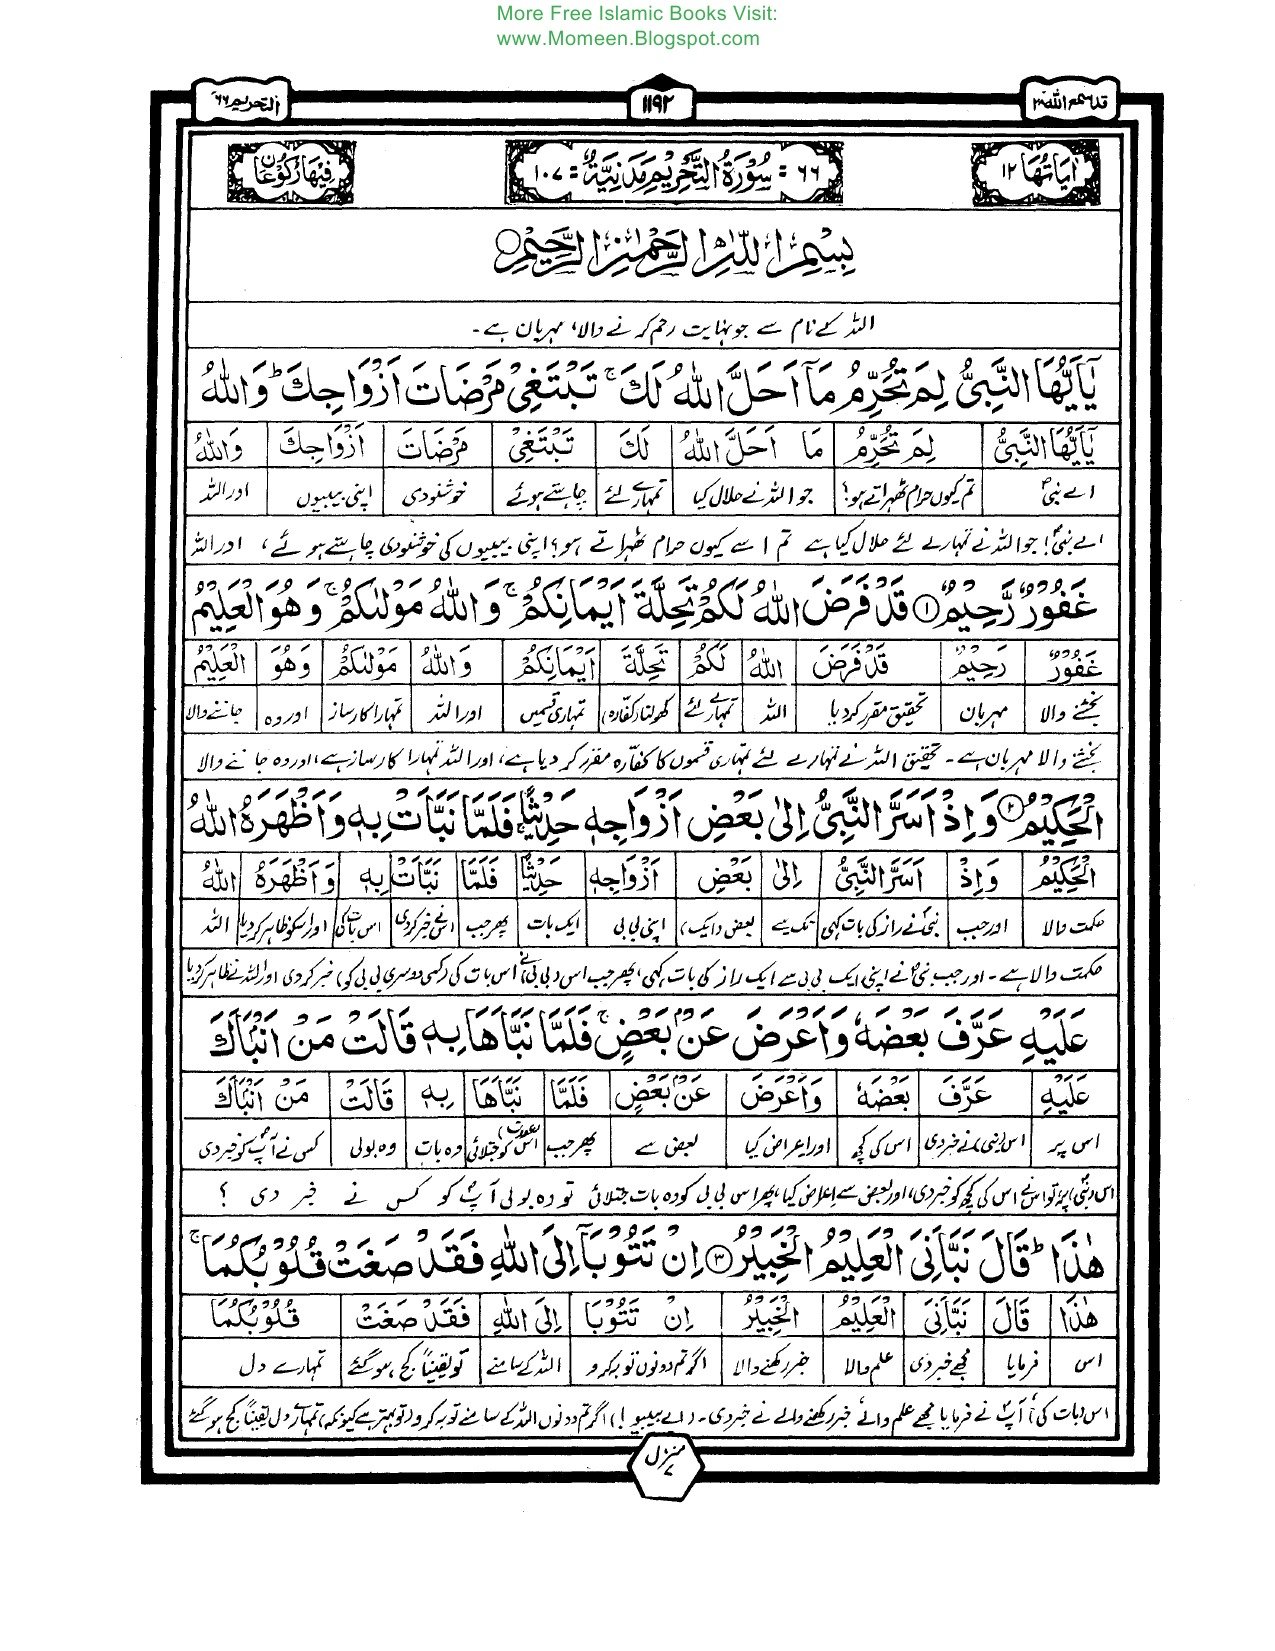 More Free Islamic Books Visit:
www.Momeen.Blogspot.com
قد سمع الله ۲۸ ۱۱۹۲ التحريم ٦٦
اٰيَاتُهَا ١٢ ٦٦ = سُوْرَةُ التَّحْرِيْمِ مَدَنِيَّةٌ = ١٠٧ فِيْهَا رُكُوْعَانِ
بِسْمِ اللّٰهِ الرَّحْمٰنِ الرَّحِيْمِ
اللہ کے نام سے جو نہایت رحم کرنے والا، مہربان ہے۔
يٰٓاَيُّهَا النَّبِيُّ لِمَ تُحَرِّمُ مَآ اَحَلَّ اللّٰهُ لَكَ ۚ تَبْتَغِيْ مَرْضَاتَ اَزْوَاجِكَ ؕ وَاللّٰهُ
يٰٓاَيُّهَا النَّبِيُّ لِمَ تُحَرِّمُ مَا اَحَلَّ اللّٰهُ لَكَ تَبْتَغِيْ مَرْضَاتَ اَزْوَاجِكَ وَاللّٰهُ
اے نبیؐ تم کیوں حرام ٹھہراتے ہو؟ جو اللہ نے حلال کیا تمہارے لئے چاہتے ہوئے خوشنودی اپنی بیبیوں اور اللہ
اے نبیؐ! جو اللہ نے تمہارے لئے حلال کیا ہے تم اسے کیوں حرام ٹھہراتے ہو؟ اپنی بیبیوں کی خوشنودی چاہتے ہوئے، اور اللہ
غَفُوْرٌ رَّحِيْمٌ ① قَدْ فَرَضَ اللّٰهُ لَكُمْ تَحِلَّةَ اَيْمَانِكُمْ ۚ وَاللّٰهُ مَوْلٰىكُمْ ۚ وَهُوَ الْعَلِيْمُ
غَفُوْرٌ رَحِيْمٌ قَدْ فَرَضَ اللّٰهُ لَكُمْ تَحِلَّةَ اَيْمَانِكُمْ وَاللّٰهُ مَوْلٰىكُمْ وَهُوَ الْعَلِيْمُ
بخشنے والا مہربان تحقیق مقرر کردیا اللہ تمہارے لئے کھولنا (کفارہ) تمہاری قسمیں اور اللہ تمہارا کارساز اور وہ جاننے والا
بخشنے والا مہربان ہے۔ تحقیق اللہ نے تمہارے لئے تمہاری قسموں کا کفّارہ مقرر کر دیا ہے، اور اللہ تمہارا کارساز ہے، اور وہ جاننے والا
الْحَكِيْمُ ② وَاِذْ اَسَرَّ النَّبِيُّ اِلٰى بَعْضِ اَزْوَاجِهٖ حَدِيْثًا ۚ فَلَمَّا نَبَّاَتْ بِهٖ وَاَظْهَرَهُ اللّٰهُ
الْحَكِيْمُ وَاِذْ اَسَرَّ النَّبِيُّ اِلٰى بَعْضِ اَزْوَاجِهٖ حَدِيْثًا فَلَمَّا نَبَّاَتْ بِهٖ وَاَظْهَرَهُ اللّٰهُ
حکمت والا اور جب نبیؐ نے راز کی بات کہی تک سے بعض (ایک) اپنی بی بی ایک بات پھر جب اس نے خبر کردی اس بات کی اور اس کو ظاہر کردیا اللہ
حکمت والا ہے۔ اور جب نبیؐ نے اپنی ایک بی بی سے ایک راز کی بات کہی، پھر جب اس (بی بی) نے اس بات کی (کسی دوسری بی بی کو) خبر کردی اور اللہ نے ظاہر کردیا
عَلَيْهِ عَرَّفَ بَعْضَهٗ وَاَعْرَضَ عَنْۢ بَعْضٍ ۚ فَلَمَّا نَبَّاَهَا بِهٖ قَالَتْ مَنْ اَنْۢبَاَكَ
عَلَيْهِ عَرَّفَ بَعْضَهٗ وَاَعْرَضَ عَنْۢ بَعْضٍ فَلَمَّا نَبَّاَهَا بِهٖ قَالَتْ مَنْ اَنْۢبَاَكَ
اس پر اس (نبی) نے خبر دی اس کی کچھ اور اعراض کیا بعض سے پھر جب اس (عورت) کو جتلائی وہ بات وہ بولی کس نے آپؐ کو خبر دی
اس (نبیؐ) پر تو اس نے اس کی کچھ کو خبر دی، اور بعض سے اعراض کیا، پھر اس بی بی کو وہ بات جتلائی تو وہ بولی آپؐ کو کس نے خبر دی ؟
هٰذَا ؕ قَالَ نَبَّاَنِيَ الْعَلِيْمُ الْخَبِيْرُ ③ اِنْ تَتُوْبَآ اِلَى اللّٰهِ فَقَدْ صَغَتْ قُلُوْبُكُمَا ۚ
هٰذَا قَالَ نَبَّاَنِيَ الْعَلِيْمُ الْخَبِيْرُ اِنْ تَتُوْبَا اِلَى اللّٰهِ فَقَدْ صَغَتْ قُلُوْبُكُمَا
اس فرمایا مجھے خبر دی علم والا خبر رکھنے والا اگر تم دونوں توبہ کرو اللہ کے سامنے تو یقیناً کج ہوگئے تمہارے دل
اس (بات کی) آپؐ نے فرمایا مجھے علم والے، خبر رکھنے والے نے خبر دی۔ (اے بیبیو!) اگر تم دونوں اللہ کے سامنے توبہ کرو (تو بہتر ہے کیونکہ) تمہارے دل یقیناً کج ہوگئے
منزل ۷